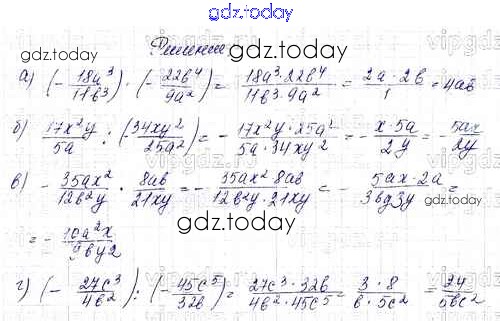 gdz.today
Решение
gdz.today gdz.today
а) (- 18a³/11b³) · (- 22b⁴/9a²) = 18a³·22b⁴/11b³·9a² = 2a·2b/1 = 4ab
б) 17x²y/5a : (34xy²/25a²) = - 17x²y·25a²/5a·34xy² = - x·5a/2y = - 5ax/2y
в) - 35ax²/12b²y · 8ab/21xy = - 35ax²·8ab/12b²y·21xy = - 5ax·2a/3by3y =
gdz.today gdz.today
= - 10a²x/9by2
gdz.today
г) (- 27c³/4b²) : (- 45c⁵/32b) = 27c³·32b/4b²·45c⁵ = 3·8/b·5c² = 24/5bc²
gdz.today